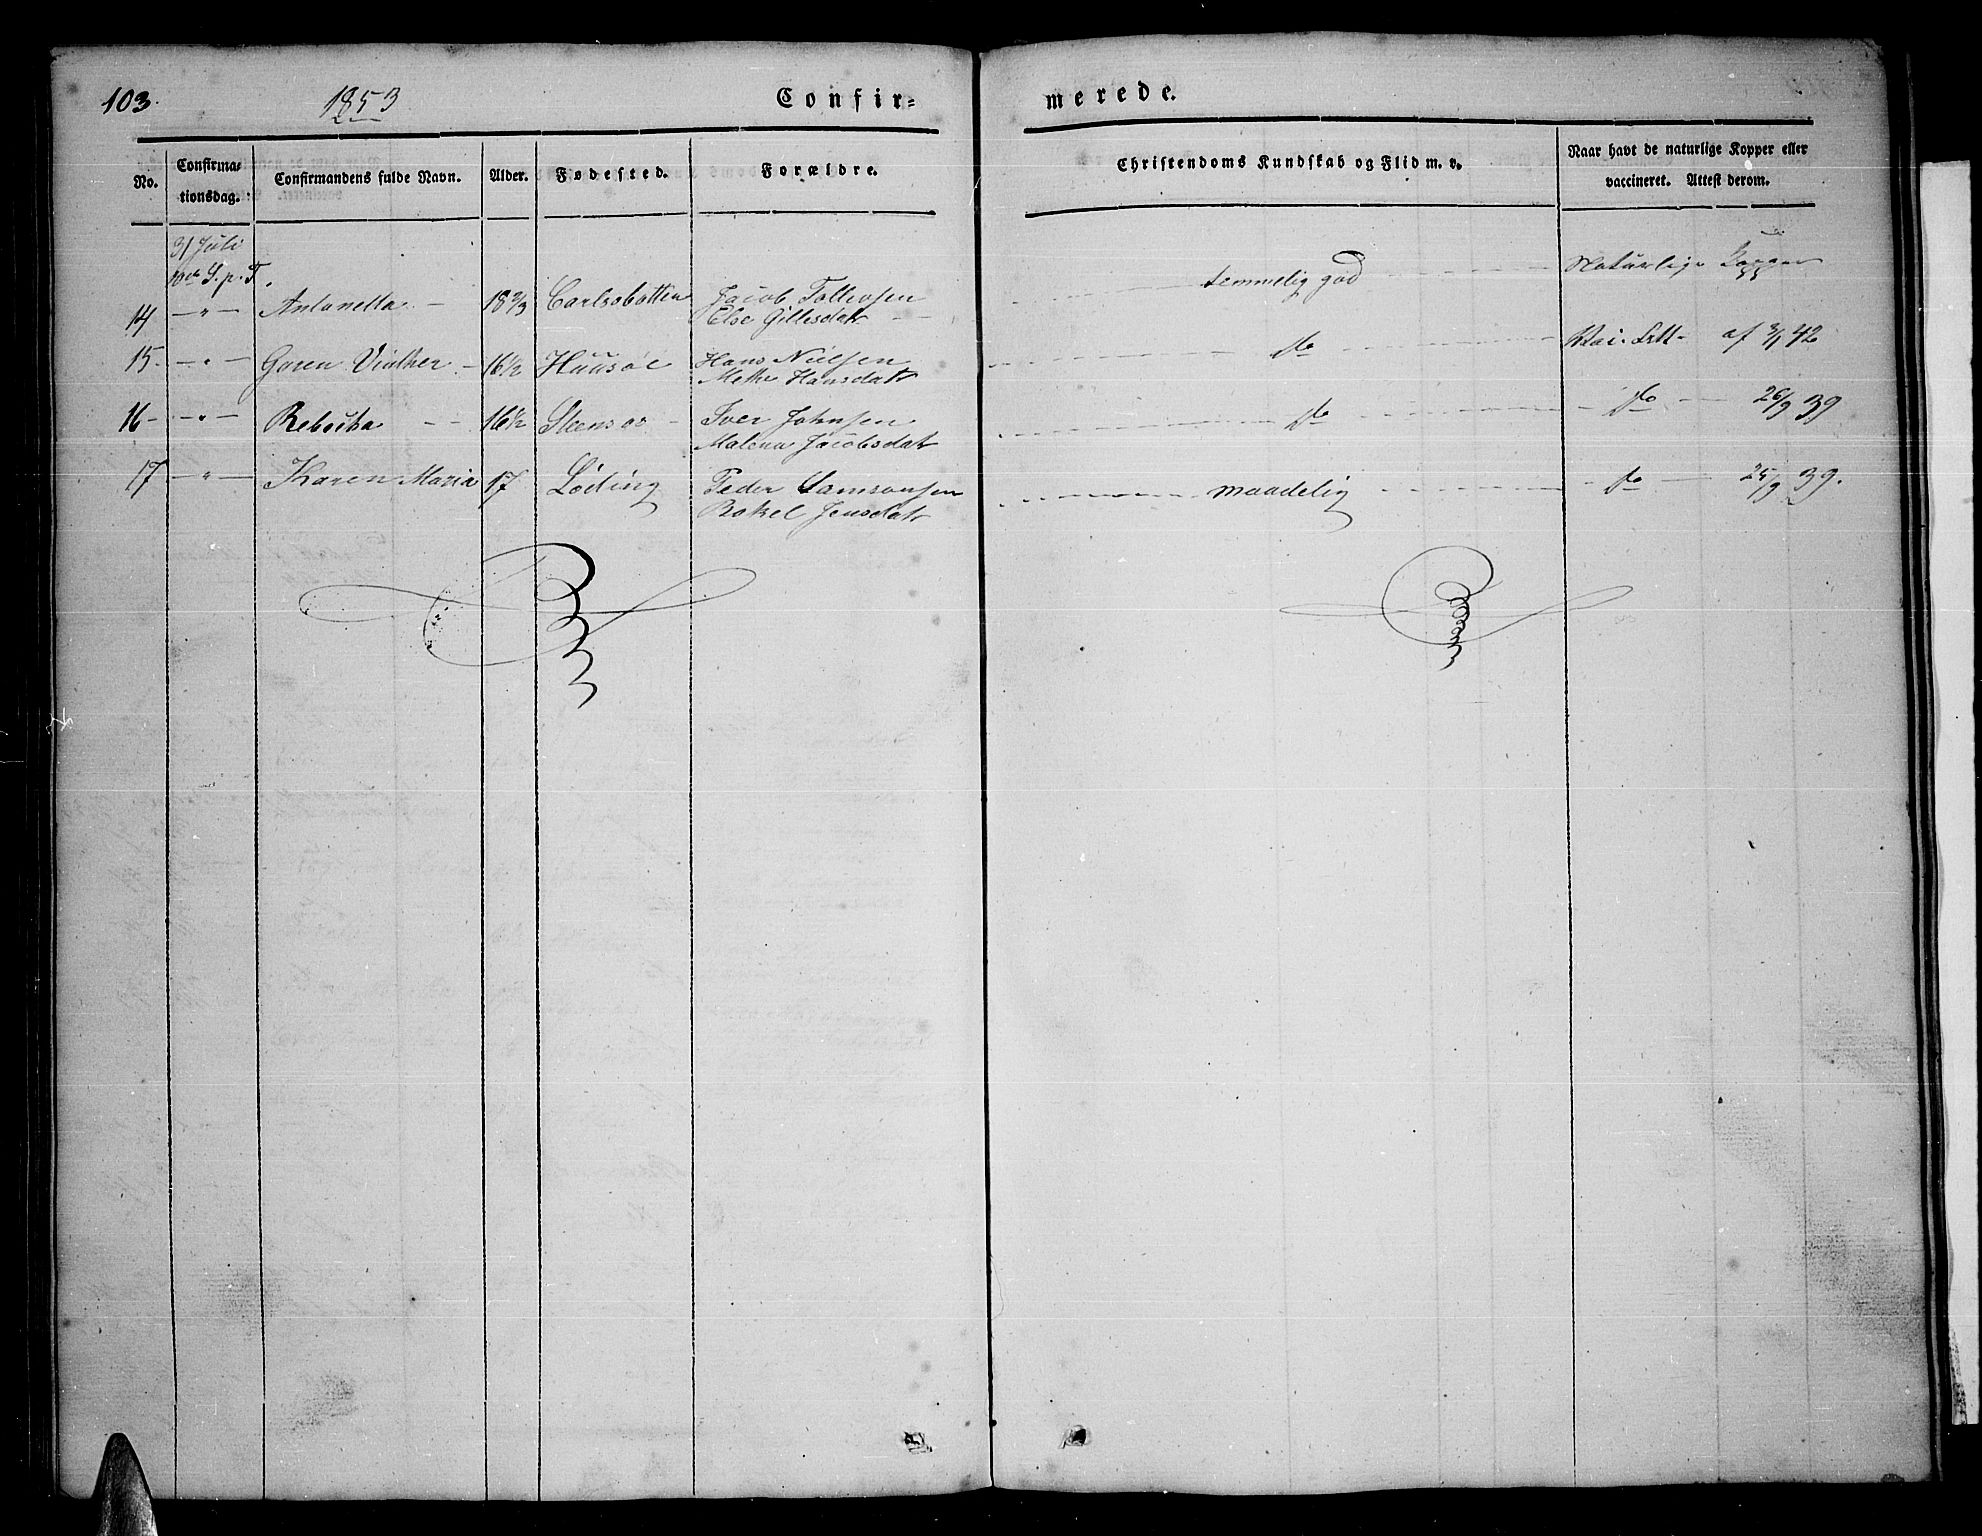 103.
1853
Confir=
merede.
No.
Confirma-
tionsdag.
Confirmandens fulde Navn.
Alder.
Fødested.
Forældre.
Christendoms Kundskab og Flid m. v.
Naar havt de naturlige Kopper eller
vaccineret. Attest derom.
31 Juli
10de S. p. T.
14 — " — Antonetta — 18 2/3 Carlsbotten Jacob Tollevsen temmelig god Naturlige Kopper
Else Gillesdatr
15 — " — Goren 16 1/2 Huusøe Hans Nielsen do Vac. Att. af 3/1 42
Methe Hansdatr
16 — " — Rebecka — 16 1/2 Steensøe Iver Johnsen do do 26/9 39
Malena Jacobsdatr
17 — " — Karen Maria 17 Löding Peder Samsonsen maadelig do 25/9 39.
Rakel Jensdatr